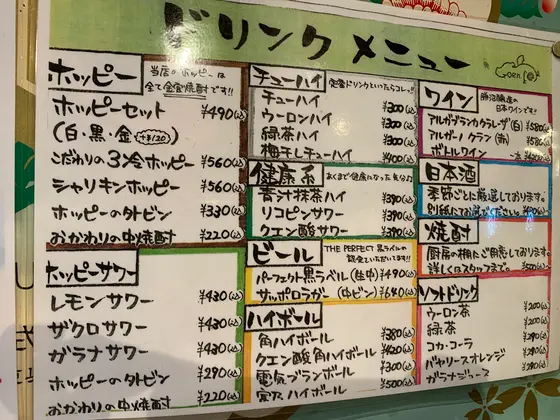 ドリンクメニュー
ホッピー
当店のホッピーは
全て金宮焼酎です!!
ホッピーセット ¥490(込)
(白・黒・金(+¥120))
こだわりの3冷ホッピー ¥560(込)
シャリキンホッピー ¥560(込)
ホッピーの外ビン ¥330(込)
おかわりの中焼酎 ¥220(込)
ホッピーサワー
レモンサワー ¥430(込)
ザクロサワー ¥430(込)
ガラナサワー ¥430(込)
ホッピーの外ビン ¥290(込)
おかわりの中焼酎 ¥220(込)
チューハイ
定番ドリンクといったらコレッ!!
チューハイ ¥300(込)
ウーロンハイ ¥300(込)
緑茶ハイ ¥300(込)
梅干しチューハイ ¥400(込)
健康系
あくまで健康になった気分♪
青汁抹茶ハイ ¥390(込)
リコピンサワー ¥390(込)
クエン酸サワー ¥390(込)
ビール
THE PERFECT 黒ラベルの
認定店いただいてます!!
パーフェクト黒ラベル(生中) ¥490(込)
サッポロラガー(中ビン) ¥640(込)
ハイボール
角ハイボール ¥380(込)
クエン酸角ハイボール ¥420(込)
電気ブランボール ¥300(込)
ハイボール ¥500(込)
ワイン
日本ワインです!!
アルガーブランカクラレーザ(白) ¥580(込)
アルガーノクラン(赤) ¥580(込)
ボトルワイン
日本酒
季節ごとに厳選しております。
別紙にてお選びください。
焼酎
厨房の棚にご用意しております。
詳しくはスタッフまで。 ¥500(込)
ソフトドリンク
ウーロン茶 ¥200(込)
緑茶 ¥200(込)
コカ・コーラ ¥290(込)
バヤリースオレンジ ¥290(込)
ガラナジュース ¥290(込)